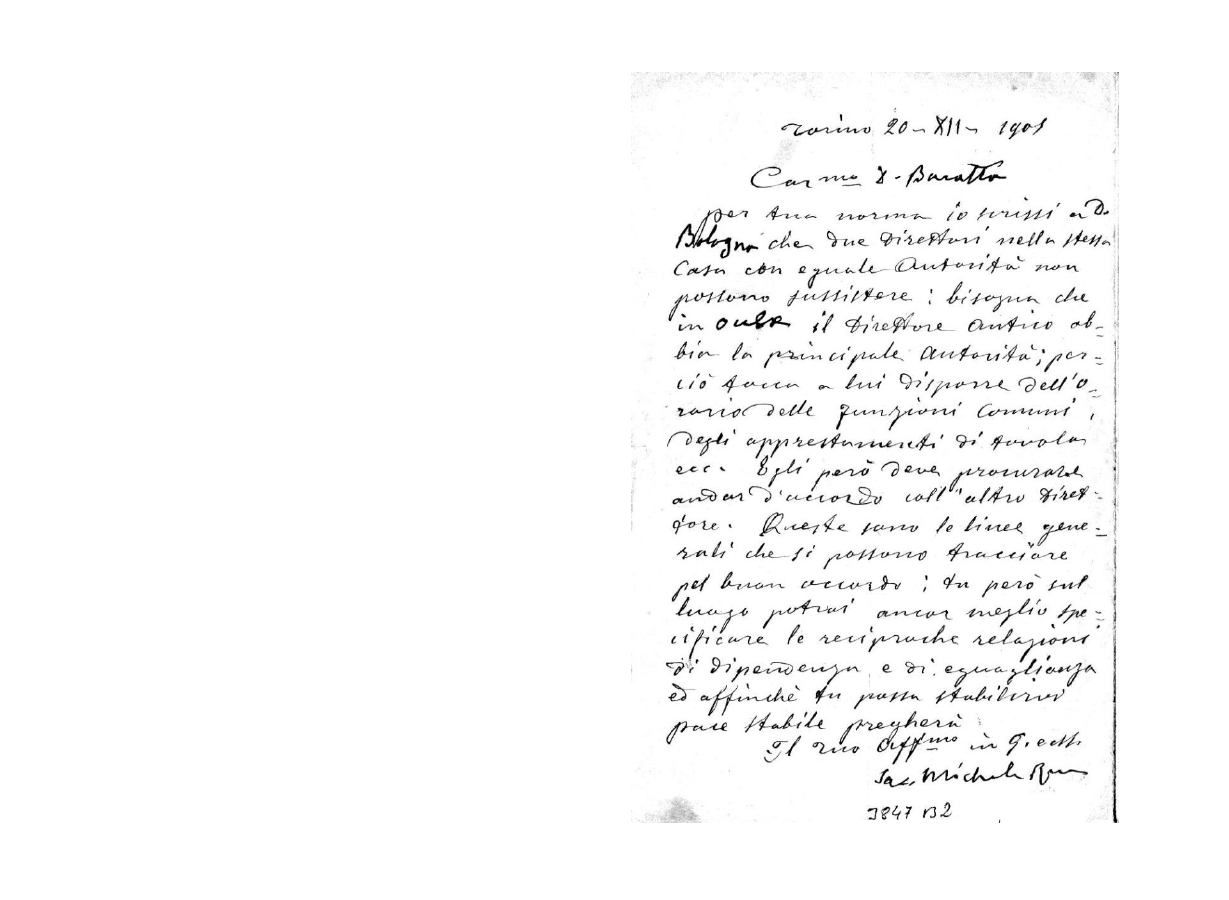 Torino 20 - XII - 1901
Car.mo D. Baratta
per tua norma io scrissi a D.
Bologna che due Direttori nella stessa
Casa con eguale Autorità non
possono sussistere : bisogna che
in il Direttore antico ab=
bia la principale autorità; per=
ciò tocca a lui disporre dell'o=
rario delle funzioni comuni,
degli apprestamenti di tavola
ecc. Egli però deve procurare
andar d'accordo coll'altro Diret=
tore. Queste sono le linee gene=
rali che si possono tracciare
pel buon accordo ; tu però sul
luogo potrai ancor meglio spe=
cificare le reciproche relazioni
di dipendenza e di eguaglianza
ed affinchè tu possa stabilirvi
pace stabile pregherà
Il tuo Aff.mo in G. e M.
Sac. Michele Rua
3847 B2